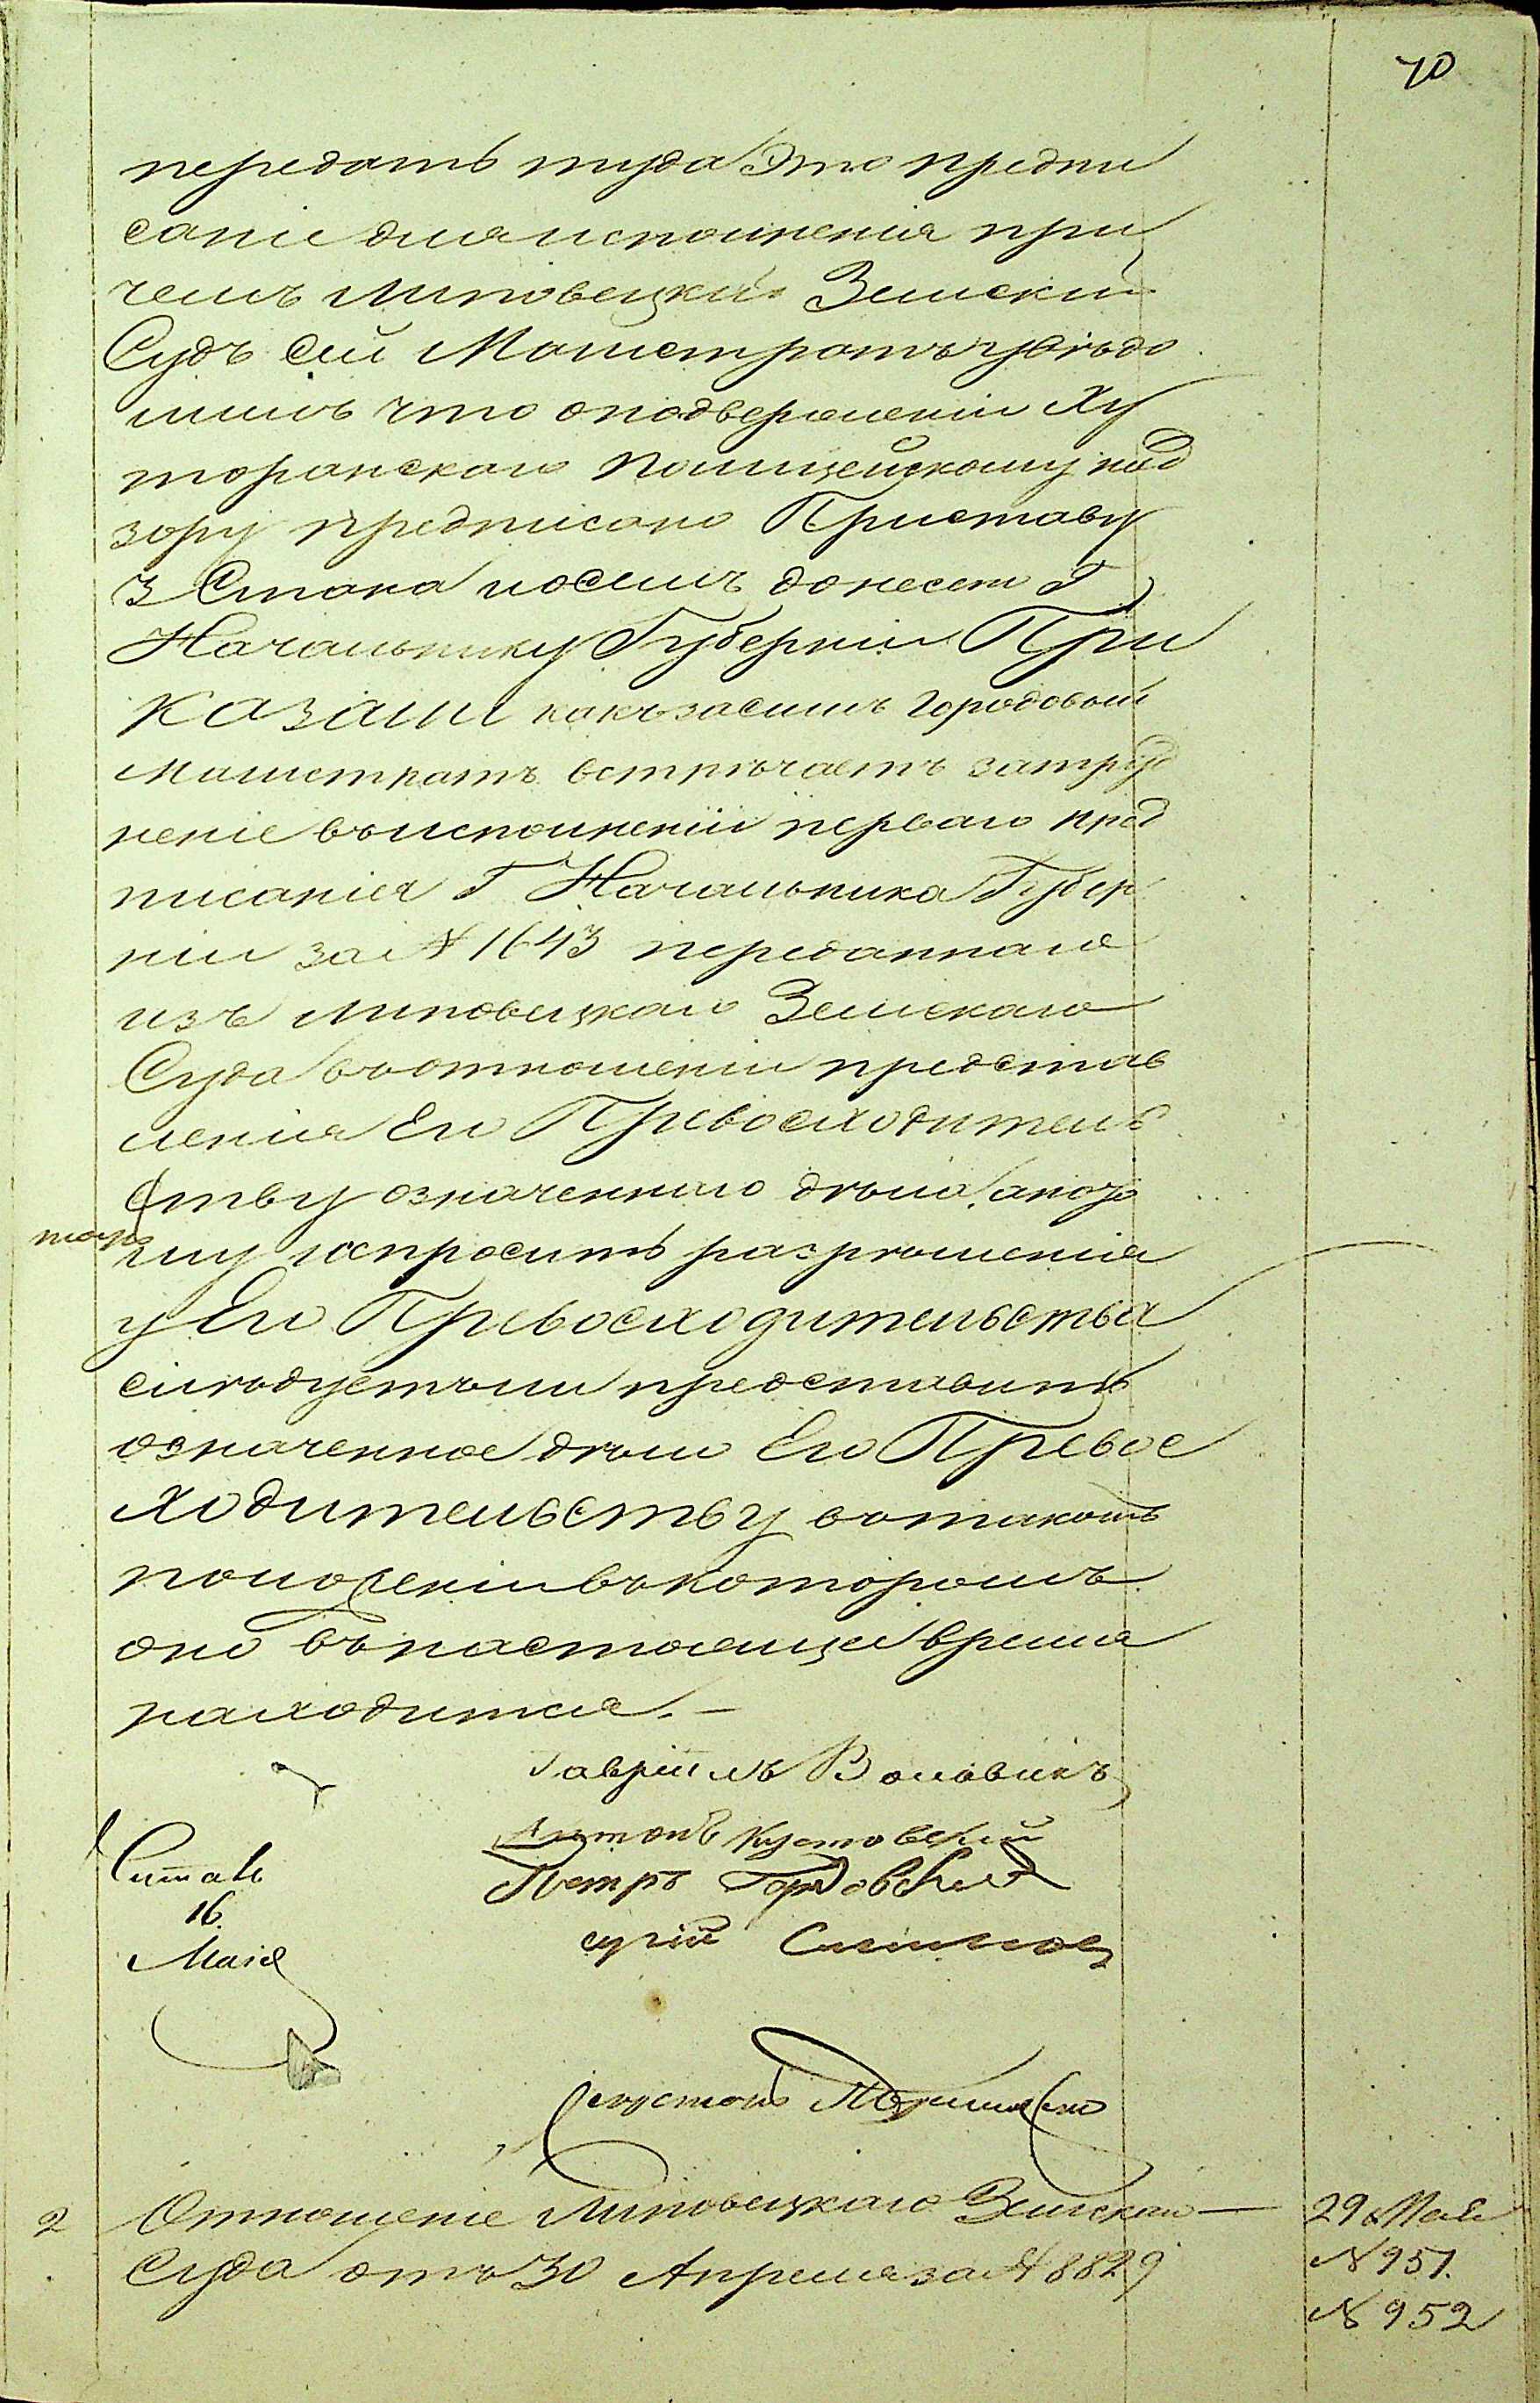 70
передать туда это предпи
саніе для исполненія при
чемъ Липовецкій Земскій
Судъ сей Магистратъ увѣдо
милъ что о подверженіи Ху
торанскаго полицейскому над
зору предписано Приставу
3 Стана и о семъ донесено Г
Начальнику Губерніи При
казали какъ за симъ Городовый
Магистратъ встрѣчаетъ затруд
неніе въ исполненіи перваго пред
писанія Г Начальника Губер
ніи за № 1643 переданнаго
изъ Липовецкаго Земскаго
Суда въ отношеніи представ
ленія Его Превосходитель
ству означеннаго дѣла, а по
тому и спросить разрѣшенія
у Его Превосходительства
слѣдуетъ ли представить
означенное дѣло Его Превос
ходительству въ такомъ
положеніи въ которомъ
оно въ настоящее время
находится. —
Гавріилъ Воловикъ
Антонъ Кутовскій
Петръ
Читалъ
16
Маія
2 Отношеніе Липовецкаго Земскаго
Суда отъ 30 Апреля за № 8829
29 Мая
№ 951.
№ 952